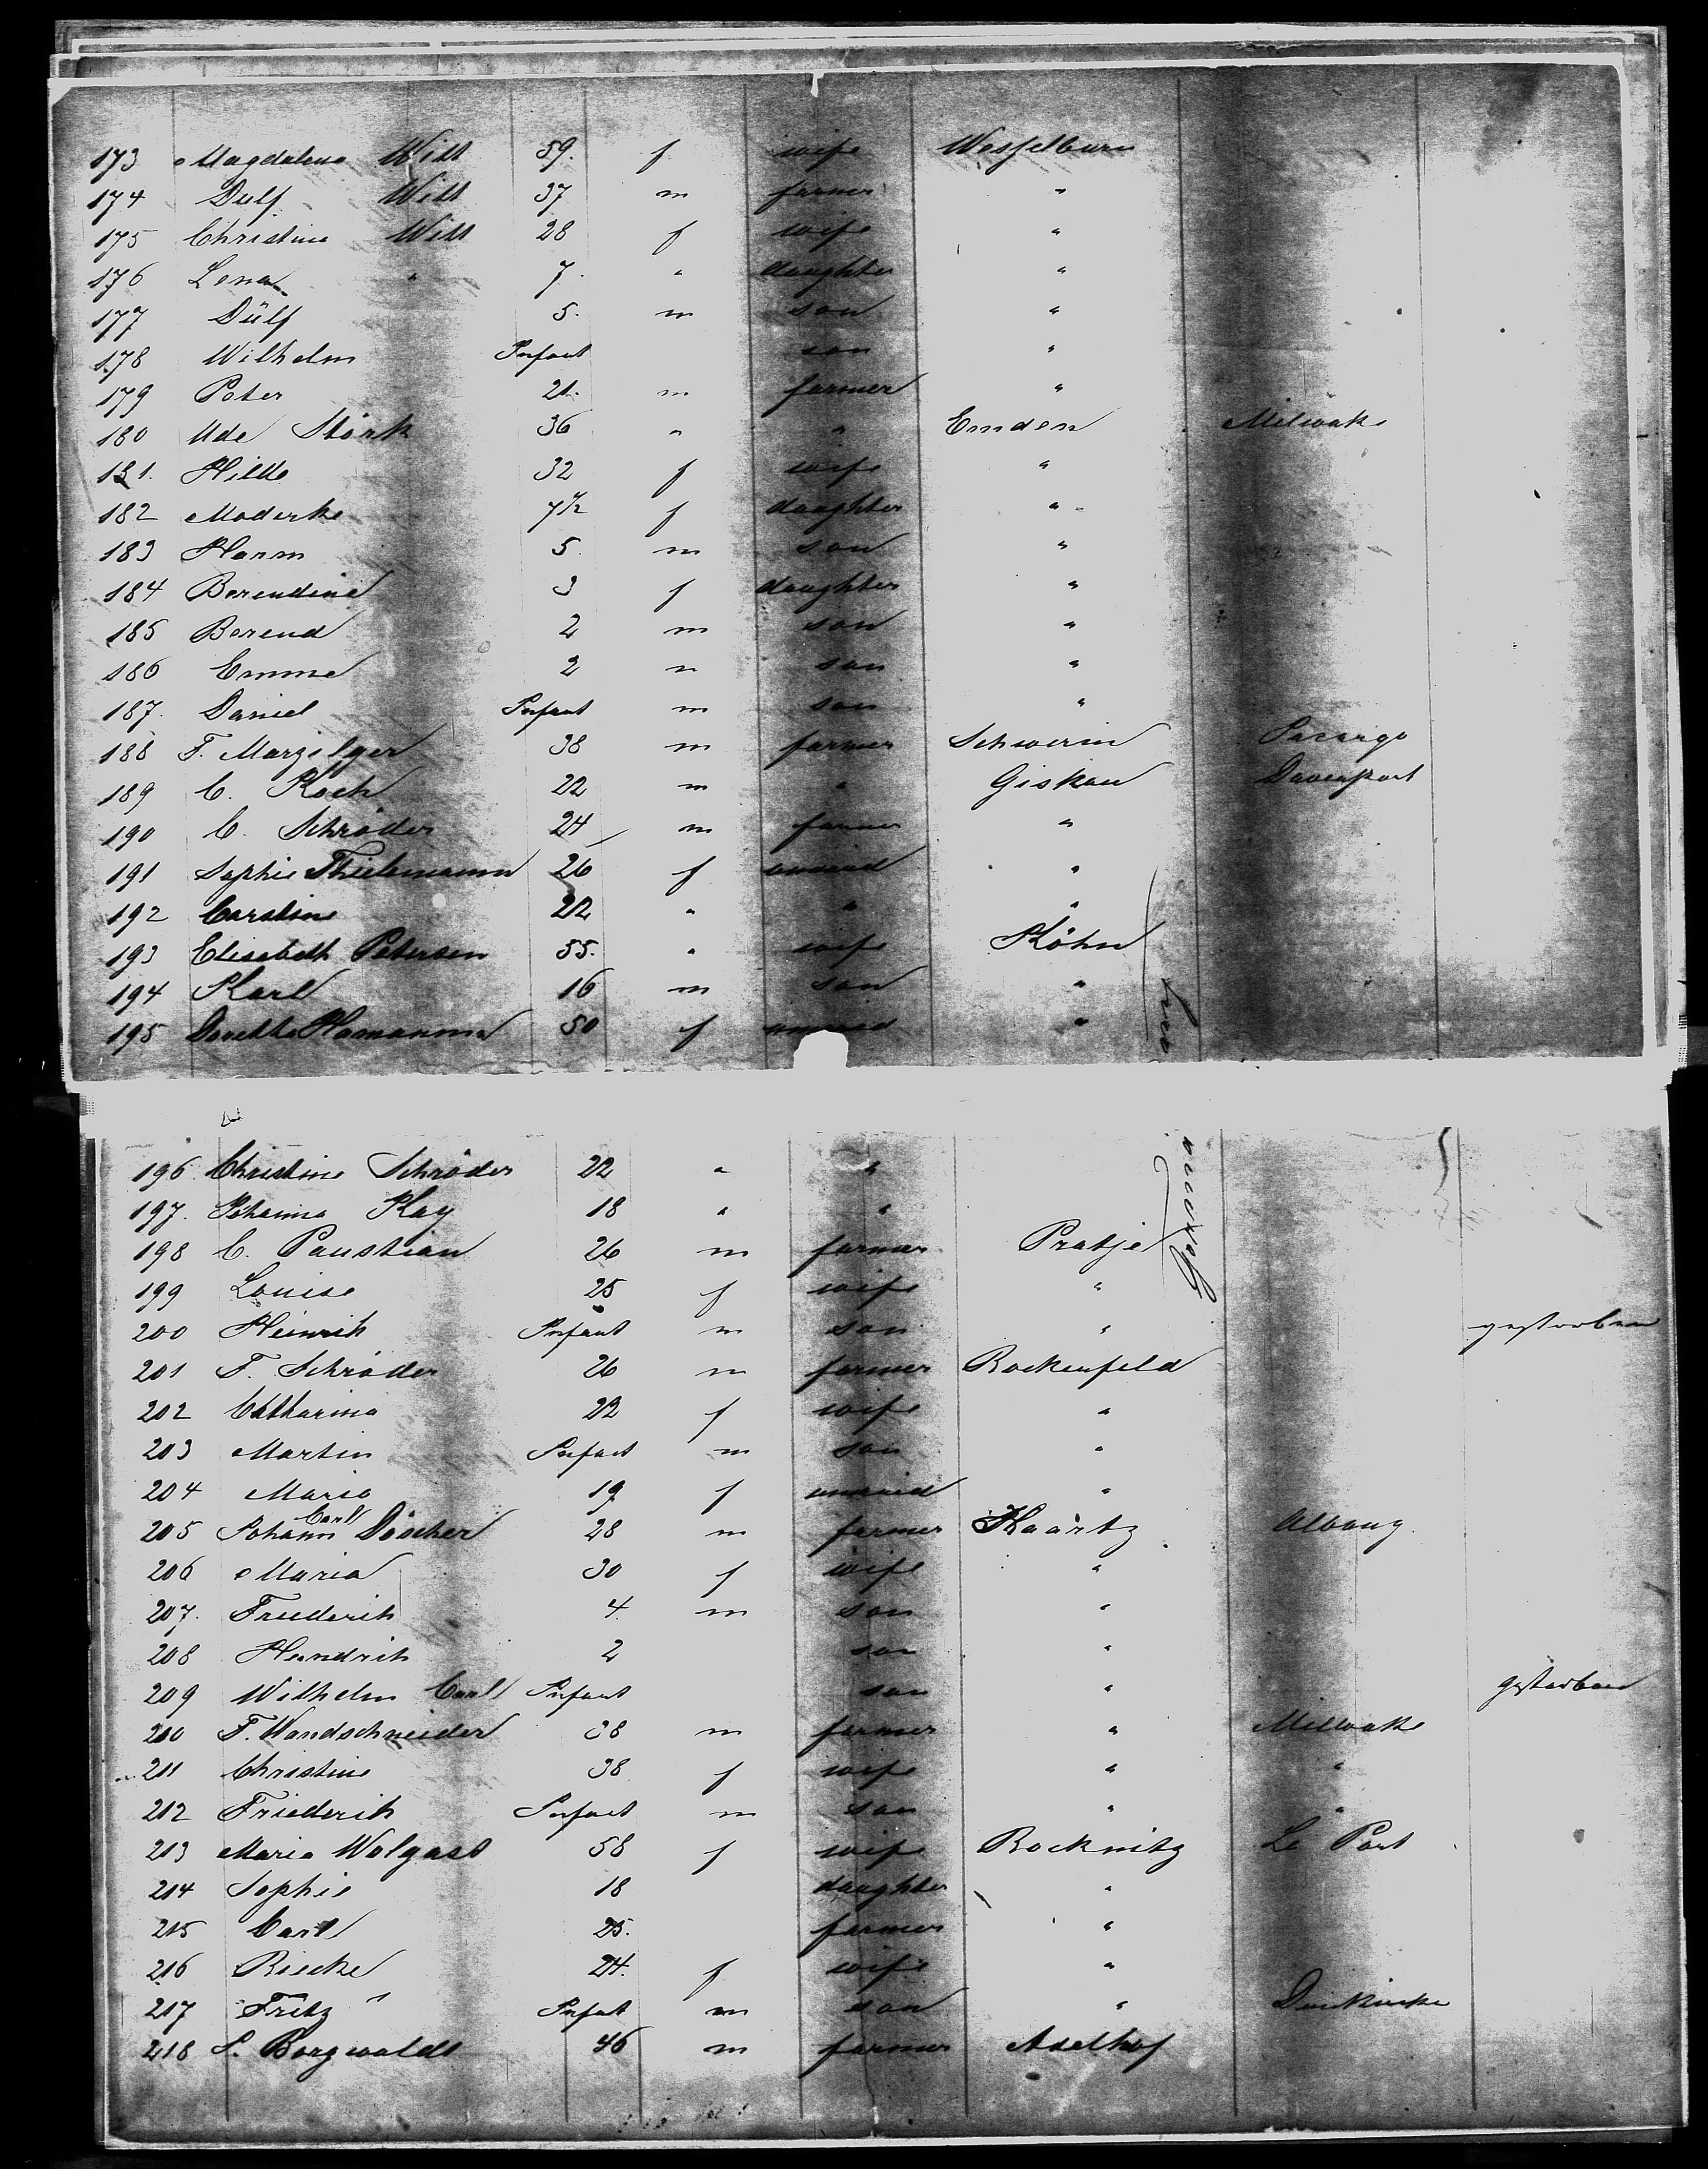 173 Magdalena Witt 59. f wife Wesselburn
174 Dulf Witt 37 m farmer "
175 Christina Witt 28 f wife "
176 Lena " 7. " daughter "
177 Dülf 5. m son "
178 Wilhelm Infant son "
179 Peter 21. m farmer "
180 Ude Störk 36 " " Emden Milwake
181. Hilke 32 f wife "
182 Moderke 7 1/2 f daughter "
183 Harm 5. m son "
184 Berendine 3 f daughter "
185 Berend 2 m son "
186 Emme 2 m son "
187. Daniel Infant m son "
188 F. Marzilger 38 m farmer Schwerin
189 C. Koch 22 m " Giskau Davenport
190 C. Schröder 24 m farmer "
191 Sophie Thielemann 26 f unmaried "
192 Carstine 22 " " "
193 Elisabeth Petersen 55. " wife Köhn
194 Karl 16 m son "
195 Dorethe Hamann 50 f unmaried "
196 Christine Schröder 22 " "
197. Johanna Kay 18 " "
198 C. Paustian 26 m farmer Pratje
199 Louise 25 f wife "
200 Heinrich Infant m son " gestorben
201 F. Schröder 26 m farmer Rockenfeld
202 Catharina 22 f wife "
203 Martin Infant m son "
204 Maria 19 f unmaried "
205 Johann Carl Döscher 28 m farmer Haartz Albany
206 Maria 30 f wife "
207. Friederih 4. m son "
208 Hendrih 2 son "
209 Wilhelm Carl Infant son " gestorben
210 F. Wandschneider 38 m farmer " Milwake
211 Christine 38 f wife " "
212 Friederih Infant m son " "
213 Maria Wolgast 58 f wife Rocknitz La Port
214 Sophie 18 daughter "
215 Carl 25. farmer "
216 Riecke 24. f wife "
217 Fritz " Infat m son "
218 S. Borgwaldt 46 m farmer Adelhof